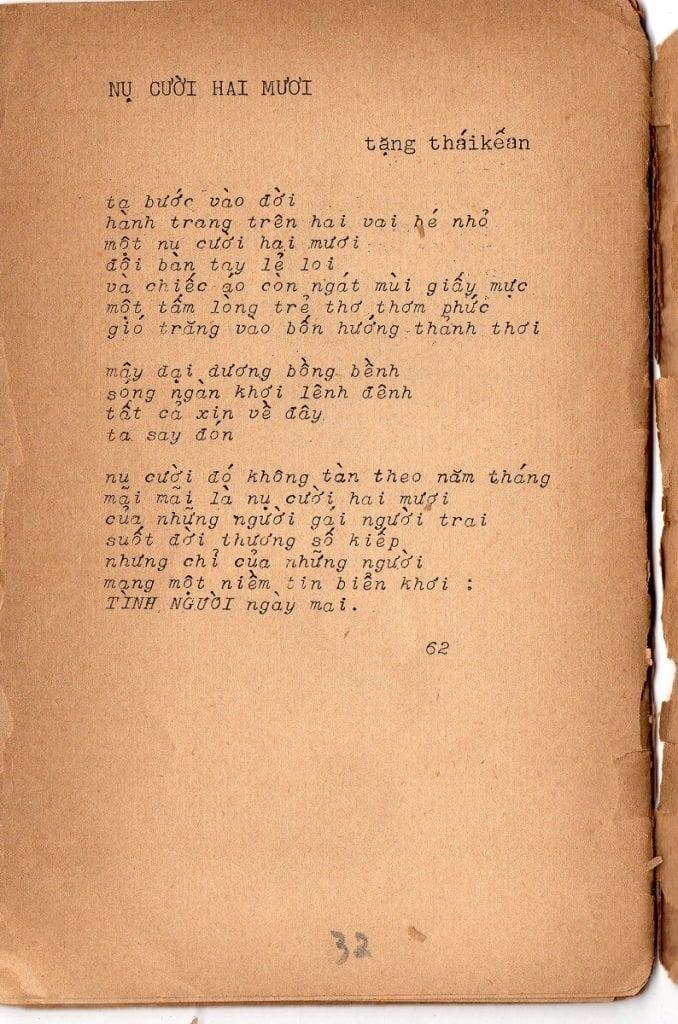 NỤ CƯỜI HAI MƯƠI
tặng tháikếan
ta bước vào đời
hành trang trên hai vai bé nhỏ
một nụ cười hai mươi
đôi bàn tay lẻ loi
và chiếc áo còn ngát mùi giấy mực
một tấm lòng trẻ thơ thơm phức
gió trăng vao bốn hướng thảnh thơi
mây đại dương bồng bềnh
sóng ngàn khơi lênh đênh
tất cả xin về đây
ta say đón
nụ cười đó không tàn theo năm tháng
mãi mãi là nụ cười hai mươi
của những người gái người trai
suốt đời thương số kiếp
nhưng chỉ của những người
mang một niềm tin biển khơi :
TÌNH NGƯỜI ngày mai.
62
32